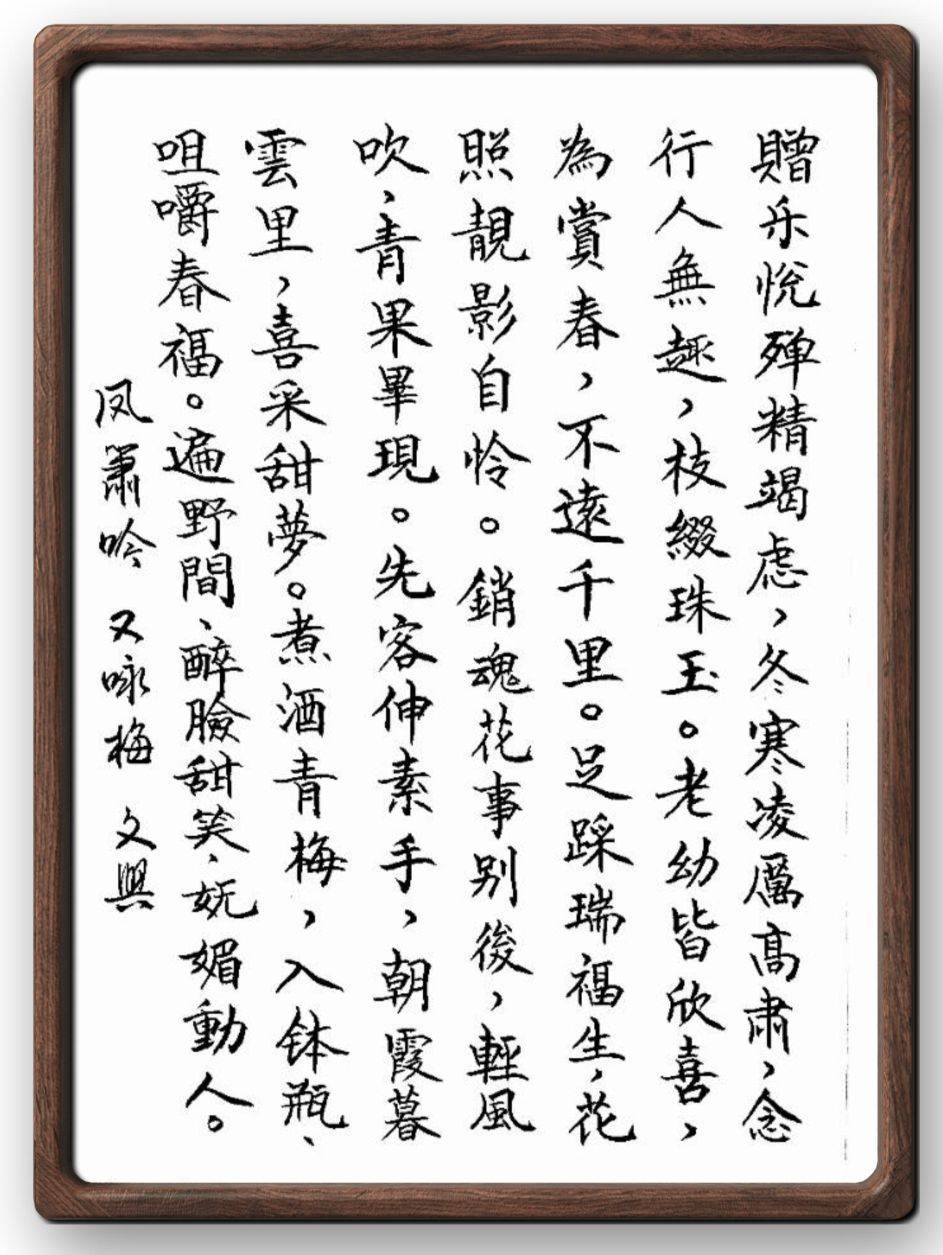 贈乐悅殫精竭虑，冬寒凌厲高肅，念
行人無趣，枝綴珠玉。老幼皆欣喜，
為賞春，不遠千里。足踩瑞福生，花
照靚影自怜。銷魂花事别後，輕風
吹、青果畢現。先客伸素手，朝霞暮
雲里，喜采甜夢。煮酒青梅，入钵瓶、
咀嚼春福。遍野間、醉臉甜笑、妩媚動人。
凤箫吟 又咏梅 文興